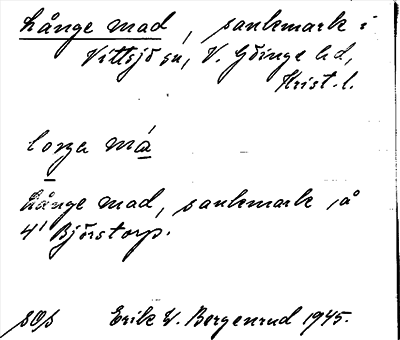 Långe mad, sankmark i
Vittsjö sn, V. Göinge hd,
Krist. l.
loŋa má
Långe mad, sankmark på
4¹ Bjärstorp.
sOs Erik W. Bergenrud 1945.